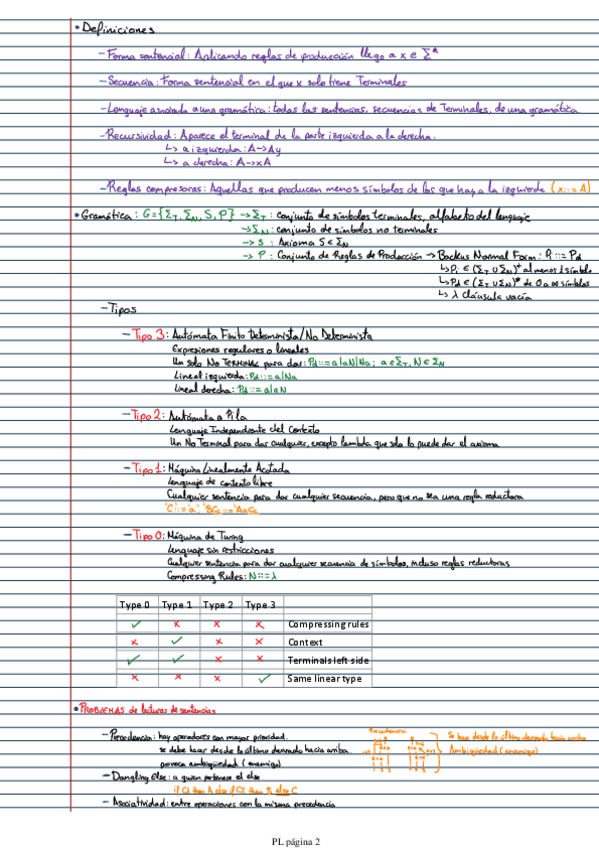 • Definiciones
– Forma sentencial: Aplicando reglas de producción llego a x ∈ Σ*
– Secuencia: Forma sentencial en el que x solo tiene Terminales
– Lenguaje asociado a una gramática: todas las sentencias, secuencias de Terminales, de una gramática
– Recursividad: Aparece el terminal de la parte izquierda a la derecha.
↳ a izquierda: A→Ay
↳ a derecha: A→xA
– Reglas compresoras: Aquellas que producen menos símbolos de los que hay a la izquierda (x::=A)
• Gramática: G={Σ_T, Σ_N, S, P} → Σ_T: conjunto de símbolos terminales, alfabeto del lenguaje
→ Σ_N: conjunto de símbolos no terminales
→ S: Axioma S∈Σ_N
→ P: Conjunto de Reglas de Producción → Backus Normal Form: Pi ::= Pd
↳ Pi ∈ (Σ_T ∪ Σ_N)⁺ al menos 1 símbolo
↳ Pd ∈ (Σ_T ∪ Σ_N)* de 0 a ∞ símbolos
↳ λ cláusula vacía
– Tipos
– Tipo 3: Autómata Finito Determinista/No Determinista
Expresiones regulares o lineales
Un solo No TERMINAL para dar: Pd::=a|aN|Na; a∈Σ_T, N∈Σ_N
Lineal izquierda: Pd::=a|Na
Lineal derecha: Pd::=a|aN
– Tipo 2: Autómata a Pila
Lenguaje Independiente del Contexto
Un No Terminal para dar cualquier, excepto lambda que solo lo puede dar el axioma
– Tipo 1: Máquina Linealmente Acotada
Lenguaje de contexto libre
Cualquier sentencia para dar cualquier secuencia, pero que no sea una regla reductora
– Tipo 0: Máquina de Turing
Lenguaje sin restricciones
Cualquier sentencia para dar cualquier secuencia de símbolos, incluso reglas reductoras
Compressing Rules: N::=λ
Type 0 Type 1 Type 2 Type 3
✓ x x x Compressing rules
x ✓ x x Context
✓ ✓ x x Terminals left side
x x x ✓ Same linear type
• PROBLEMAS de lecturas de sentencias
– Precedencia: hay operadores con mayor prioridad.
se debe hacer desde lo último derivado hacia arriba.
provoca ambigüedad (enemigo)
Precedencia
Se hace desde lo último derivado hacia arriba
Ambigüedad (enemigo)
– Dangling Else: a quien pertenece el else
– Asociatividad: entre operaciones con la misma precedencia
PL página 2